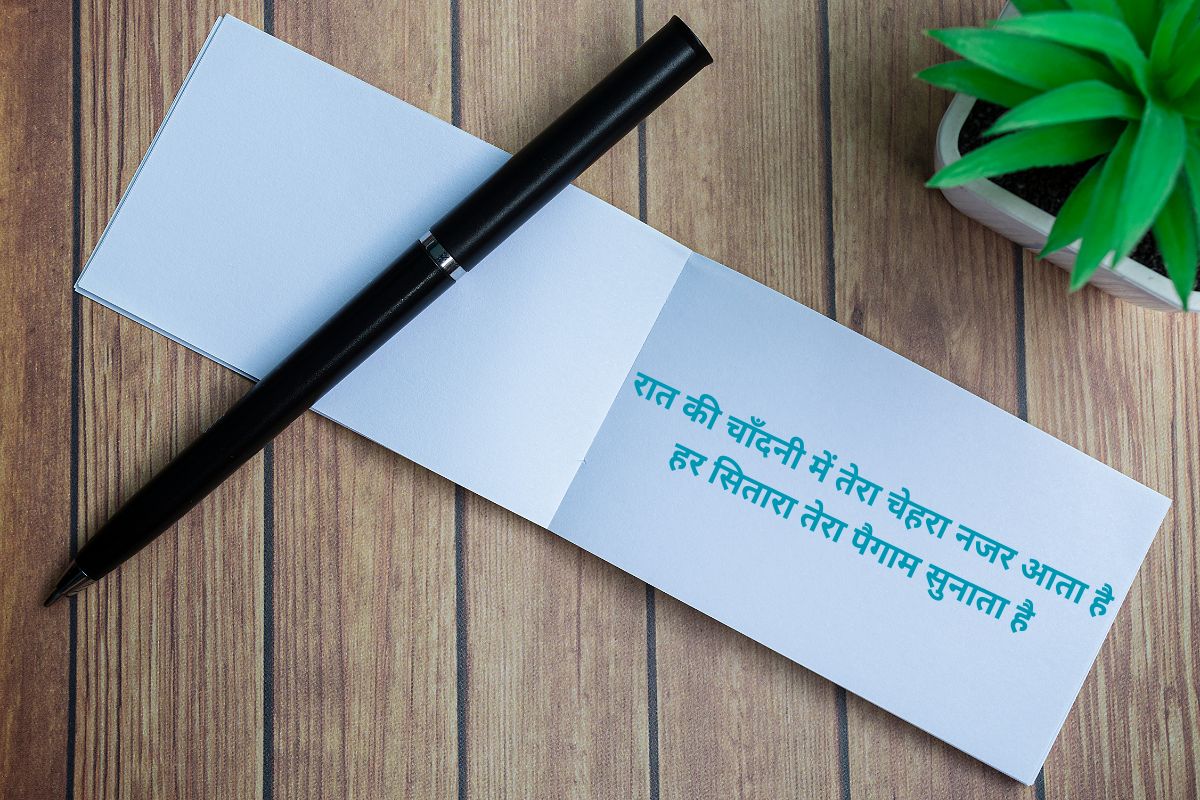 रात की चाँदनी में तेरा चेहरा नजर आता है
हर सितारा तेरा पैगाम सुनाता है